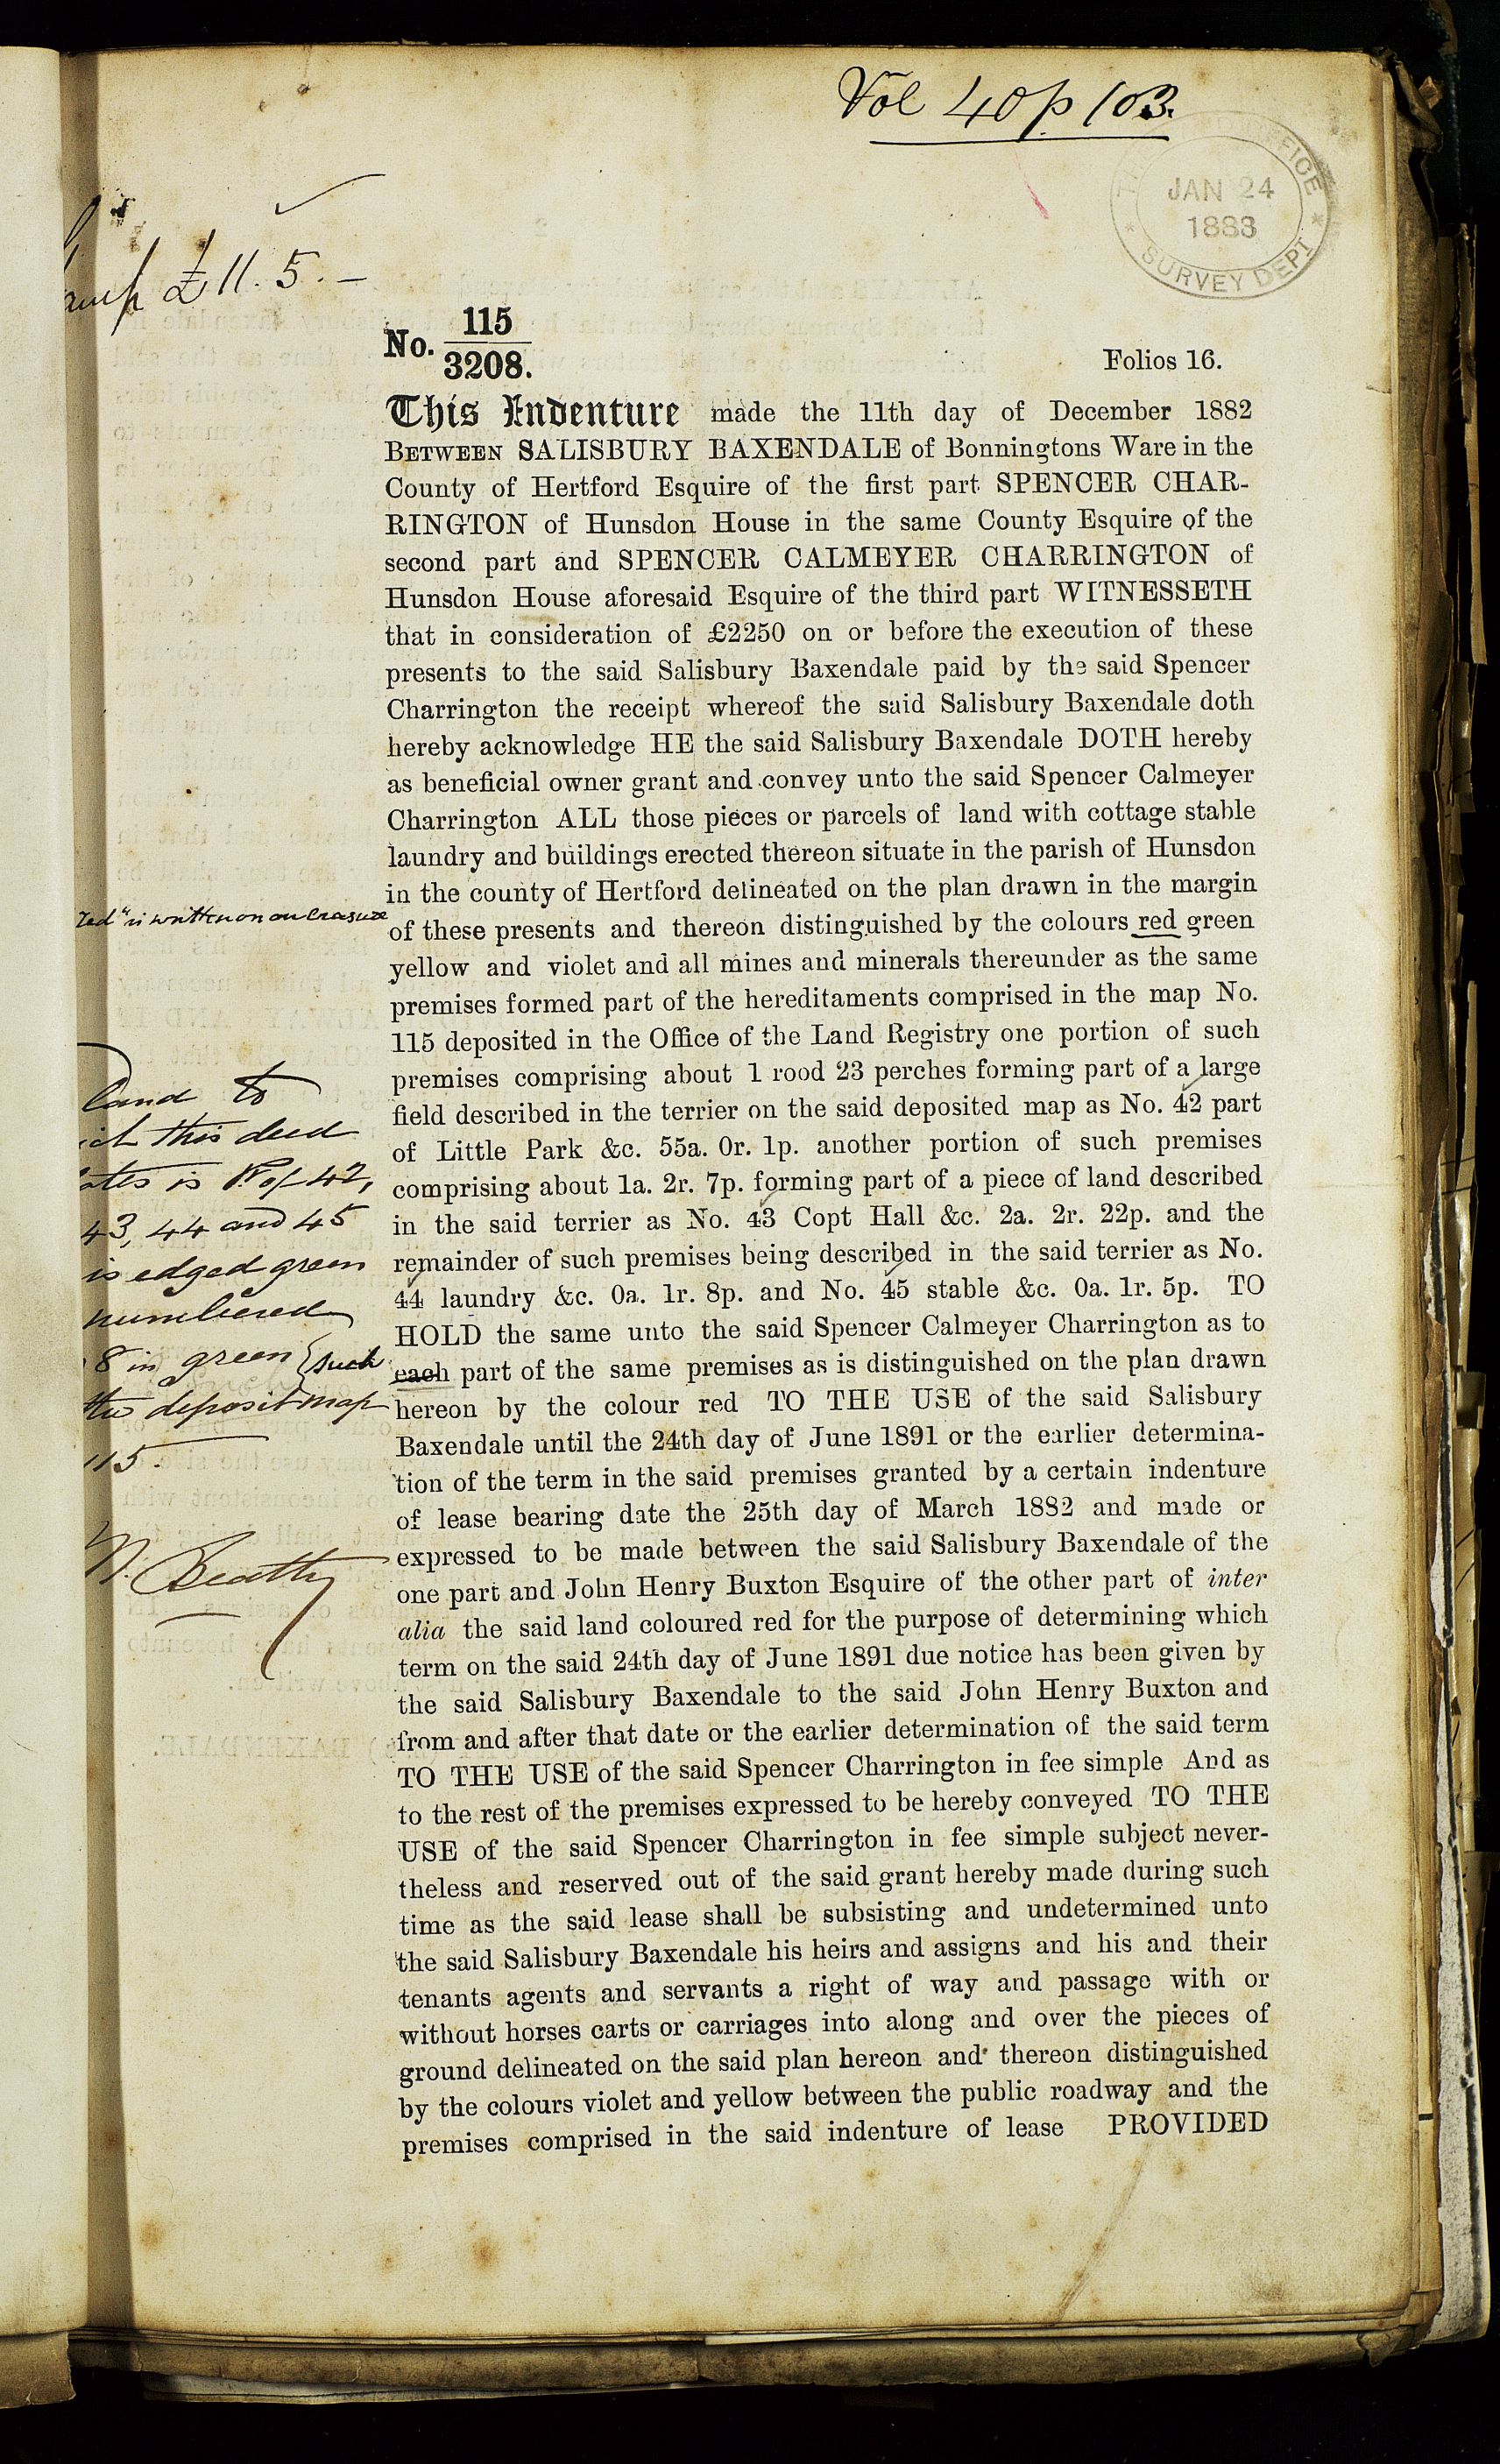 Vol 40 p 103.
OFFICE
JAN 24
1883
SURVEY DEPT
£11. 5. —
No. 115
3208.
Folios 16.
This Indenture made the 11th day of December 1882
BETWEEN SALISBURY BAXENDALE of Bonningtons Ware in the
County of Hertford Esquire of the first part SPENCER CHAR-
RINGTON of Hunsdon House in the same County Esquire of the
second part and SPENCER CALMEYER CHARRINGTON of
Hunsdon House aforesaid Esquire of the third part WITNESSETH
that in consideration of £2250 on or before the execution of these
presents to the said Salisbury Baxendale paid by the said Spencer
Charrington the receipt whereof the said Salisbury Baxendale doth
hereby acknowledge HE the said Salisbury Baxendale DOTH hereby
as beneficial owner grant and convey unto the said Spencer Calmeyer
Charrington ALL those pieces or parcels of land with cottage stable
laundry and buildings erected thereon situate in the parish of Hunsdon
in the county of Hertford delineated on the plan drawn in the margin
red" is written on an erasure
of these presents and thereon distinguished by the colours red green
yellow and violet and all mines and minerals thereunder as the same
premises formed part of the hereditaments comprised in the map No.
115 deposited in the Office of the Land Registry one portion of such
premises comprising about 1 rood 23 perches forming part of a large
field described in the terrier on the said deposited map as No. 42 part
of Little Park &c. 55a. 0r. 1p. another portion of such premises
comprising about 1a. 2r. 7p. forming part of a piece of land described
in the said terrier as No. 43 Copt Hall &c. 2a. 2r. 22p. and the
remainder of such premises being described in the said terrier as No.
44 laundry &c. 0a. 1r. 8p. and No. 45 stable &c. 0a. 1r. 5p. TO
HOLD the same unto the said Spencer Calmeyer Charrington as to
each part of the same premises as is distinguished on the plan drawn
hereon by the colour red TO THE USE of the said Salisbury
Baxendale until the 24th day of June 1891 or the earlier determina-
tion of the term in the said premises granted by a certain indenture
of lease bearing date the 25th day of March 1882 and made or
expressed to be made between the said Salisbury Baxendale of the
one part and John Henry Buxton Esquire of the other part of inter
alia the said land coloured red for the purpose of determining which
term on the said 24th day of June 1891 due notice has been given by
the said Salisbury Baxendale to the said John Henry Buxton and
from and after that date or the earlier determination of the said term
TO THE USE of the said Spencer Charrington in fee simple And as
to the rest of the premises expressed to be hereby conveyed TO THE
USE of the said Spencer Charrington in fee simple subject never-
theless and reserved out of the said grant hereby made during such
time as the said lease shall be subsisting and undetermined unto
the said Salisbury Baxendale his heirs and assigns and his and their
tenants agents and servants a right of way and passage with or
without horses carts or carriages into along and over the pieces of
ground delineated on the said plan hereon and thereon distinguished
by the colours violet and yellow between the public roadway and the
premises comprised in the said indenture of lease PROVIDED
land to
this deed
is Pt of 42,
43, 44 and 45
is edged green
numbered
8 in green {such
the deposit map
115.
Beatty